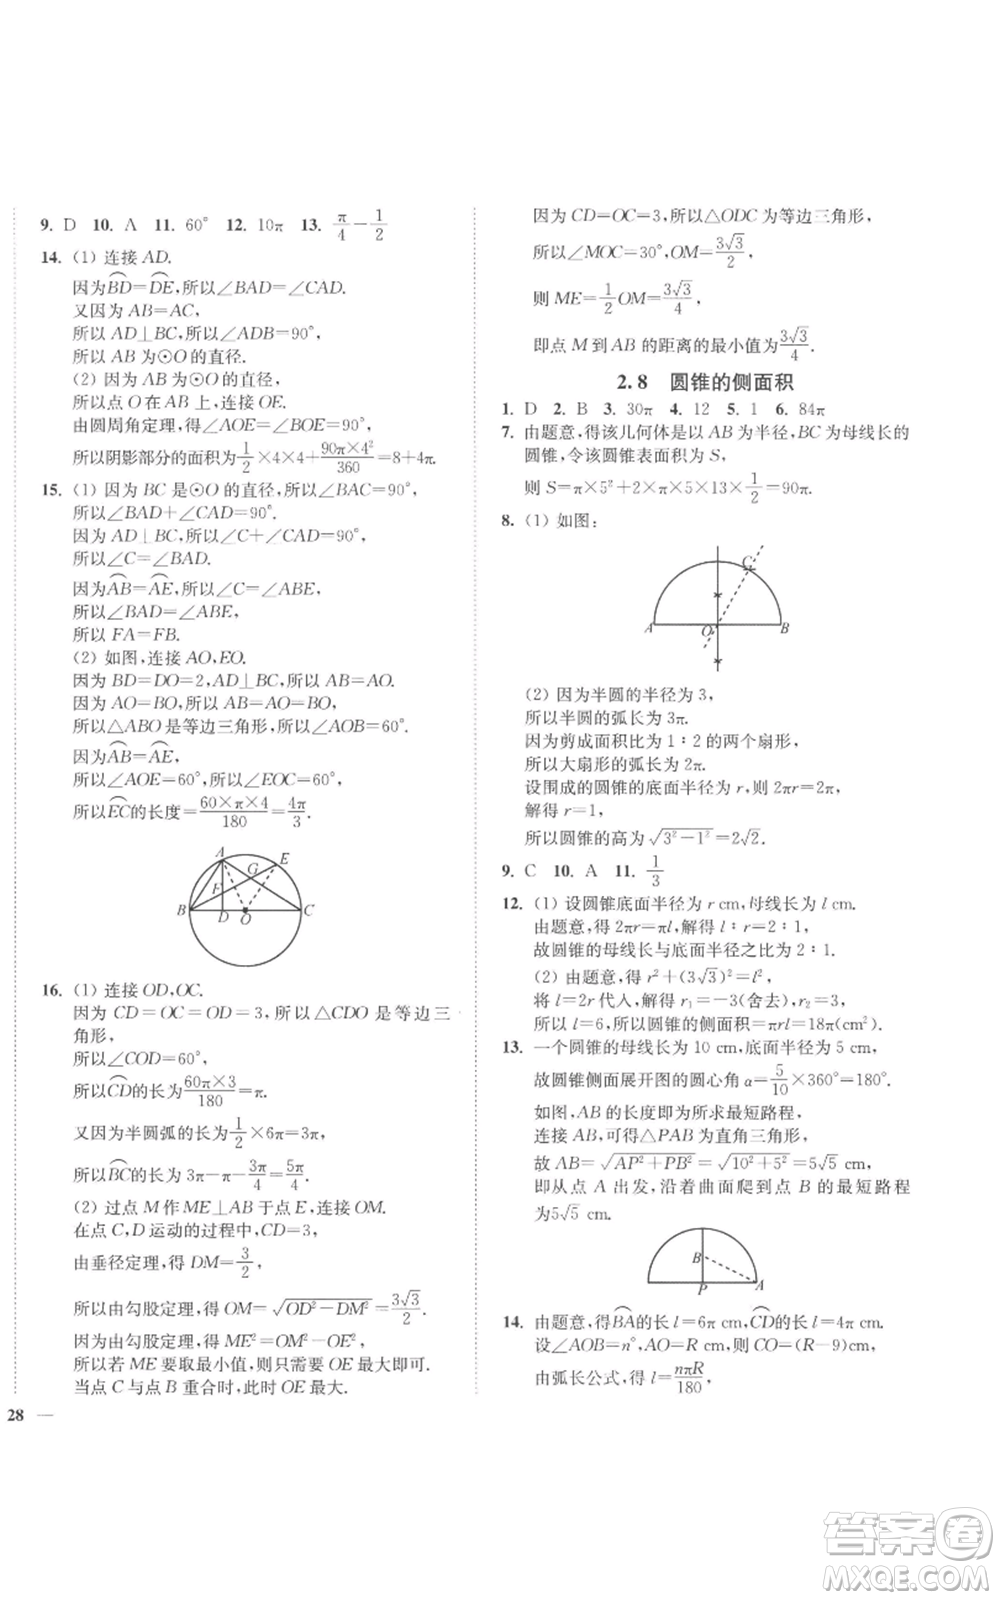 9. D 10. A 11. 60° 12. 10π 13. π/4－1/2
14. (1) 连接 AD.
因为⌒BD=⌒DE,所以∠BAD=∠CAD.
又因为 AB=AC,
所以 AD⊥BC,所以∠ADB=90°,
所以 AB 为⊙O 的直径.
(2) 因为 AB 为⊙O 的直径,
所以点 O 在 AB 上,连接 OE.
由圆周角定理,得∠AOE=∠BOE=90°,
所以阴影部分的面积为1/2×4×4+90π×4²/360=8+4π.
15. (1) 因为 BC 是⊙O 的直径,所以∠BAC=90°,
所以∠BAD+∠CAD=90°.
因为 AD⊥BC,所以∠C+∠CAD=90°,
所以∠C=∠BAD.
因为⌒AB=⌒AE,所以∠C=∠ABE,
所以∠BAD=∠ABE,
所以 FA=FB.
(2) 如图,连接 AO,EO.
因为 BD=DO=2,AD⊥BC,所以 AB=AO.
因为 AO=BO,所以 AB=AO=BO,
所以△ABO 是等边三角形,所以∠AOB=60°.
因为⌒AB=⌒AE,
所以∠AOE=60°,所以∠EOC=60°,
所以⌒EC的长度=60×π×4/180=4π/3.
A E G F B D O C
16. (1) 连接 OD,OC.
因为 CD=OC=OD=3,所以△CDO 是等边三
角形,
所以∠COD=60°,
所以⌒CD的长为60π×3/180=π.
又因为半圆弧的长为1/2×6π=3π,
所以⌒BC的长为 3π－π－3π/4=5π/4.
(2) 过点 M 作 ME⊥AB 于点 E,连接 OM.
在点 C,D 运动的过程中,CD=3,
由垂径定理,得 DM=3/2,
所以由勾股定理,得 OM=√(OD²－DM²)=3√3/2.
因为由勾股定理,得 ME²=OM²－OE²,
所以若 ME 要取最小值,则只需要 OE 最大即可.
当点 C 与点 B 重合时,此时 OE 最大.
28
因为 CD=OC=3,所以△ODC 为等边三角形,
所以∠MOC=30°,OM=3√3/2,
则 ME=1/2OM=3√3/4,
即点 M 到 AB 的距离的最小值为3√3/4.
2.8 圆锥的侧面积
1. D 2. B 3. 30π 4. 12 5. 1 6. 84π
7. 由题意,得该几何体是以 AB 为半径,BC 为母线长的
圆锥,令该圆锥表面积为 S,
则 S=π×5²+2×π×5×13×1/2=90π.
8. (1) 如图:
C A O B
(2) 因为半圆的半径为 3,
所以半圆的弧长为 3π.
因为剪成面积比为 1∶2 的两个扇形,
所以大扇形的弧长为 2π.
设围成的圆锥的底面半径为 r,则 2πr=2π,
解得 r=1,
所以圆锥的高为√(3²－1²)=2√2.
9. C 10. A 11. 1/3
12. (1) 设圆锥底面半径为 r cm,母线长为 l cm.
由题意,得 2πr=πl,解得 l∶r=2∶1,
故圆锥的母线长与底面半径之比为 2∶1.
(2) 由题意,得 r²+(3√3)²=l²,
将 l=2r 代入,解得 r₁=－3(舍去),r₂=3,
所以 l=6,所以圆锥的侧面积=πrl=18π(cm²).
13. 一个圆锥的母线长为 10 cm,底面半径为 5 cm,
故圆锥侧面展开图的圆心角α=5/10×360°=180°.
如图,AB 的长度即为所求最短路程,
连接 AB,可得△PAB 为直角三角形,
故 AB=√(AP²+PB²)=√(10²+5²)=5√5 cm,
即从点 A 出发,沿着曲面爬到点 B 的最短路程
为5√5 cm.
B P A
14. 由题意,得⌒BA的长 l=6π cm,⌒CD的长 l=4π cm.
设∠AOB=n°,AO=R cm,则 CO=(R－9)cm,
由弧长公式,得 l=nπR/180,
答案卷
MXQE.COM